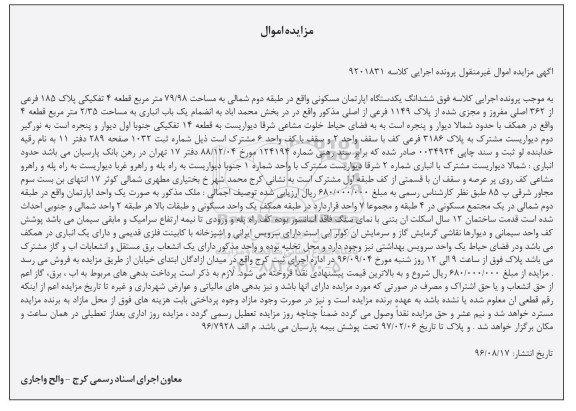 مزایده اموال
آگهی مزایده اموال غیرمنقول پرونده اجرایی کلاسه ۹۲۰۱۸۳۱
به موجب پرونده اجرایی کلاسه فوق ششدانگ یکدستگاه آپارتمان مسکونی واقع در طبقه دوم شمالی به مساحت ۷۹/۹۸ متر مربع قطعه ۴ تفکیکی پلاک ۱۸۵ فرعی
از ۳۶۲ اصلی مفروز و مجزی شده از پلاک ۱۱۴۹ فرعی از اصلی مذکور واقع در در بخش محمد آباد به انضمام یک باب انباری به مساحت ۲/۳۵ متر مربع قطعه ۴
واقع در همکف با حدود شمالا دیوار و پنجره است به به فضای حیاط خلوت مشاعی شرقا دیواریست به قطعه ۱۴ تفکیکی جنوبا اول دیوار و پنجره است به نورگیر
دوم دیواریست مشترک به پلاک ۳۱۸۶ فرعی کف با سقف واحد ۲ و سقف با کف واحد ۶ مشترک است ذیل شماره ثبت ۱۰۳۲ صفحه ۲۸۹ دفتر ۱۱ به نام رقیه
خدابنده لو ثبت و سند چاپی ۰۰۳۴۹۲۴ صادر شده که برابر سند رهنی شماره ۱۲۴۱۹۴ مورخ ۸۸/۱۲/۰۴ دفتر ۱۷ تهران در رهن بانک پارسیان می باشد حدود
انباری : شمالا دیواریست مشترک با انباری شماره ۲ شرقا دیواریست مشترک با واحد شماره ۱ جنوبا دیواریست به راه پله و راهرو غربا دیواریست به راه پله و راهرو
مشاعی کف روی پر عرصه و سقف آن با قسمتی از کف طبقه اول مشترک است به نشانی کرج محمد شهر خ بختیاری مطهری شمالی کوثر ۱۷ انتهای بن بست سوم
مجاور شرقی پ ۸۵ طبق نظر کارشناس رسمی به مبلغ ۶۸۰/۰۰۰/۰۰۰ ریال ارزیابی شده توصیف اجمالی : ملک مذکور به صورت یک واحد آپارتمان واقع در طبقه
دوم شمالی در یک مجتمع مسکونی در ۴ طبقه و مجموعا ۷ واحد قراردارد در طبقه همکف یک واحد مسکونی و طبقات بالا هر طبقه ۲ واحد شمالی و جنوبی احداث
شده است قدمت ساختمان ۱۲ سال اسکلت آن بتنی با نمای سنگ فاقد آسانسور بوده کف راه پله و ورودی تا نیمه ارتفاع سرامیک و مابقی سیمان می باشد پوشش
کف واحد سیمانی و دیوارها نقاشی گرمایش گاز و سرمایش آن کولر آبی است دارای سرویس ایرانی و آشپزخانه با کابینت فلزی قدیمی و دارای یک انباری در همکف
می باشد ودر فضای حیاط یک واحد سرویس بهداشتی نیز وجود دارد و محل تخلیه بوده و واحد مذکور دارای یک انشعاب برق مستقل و انشعابات آب و گاز مشترک
می باشد پلاک فوق از ساعت ۹ الی ۱۲ روز شنبه مورخ ۹۶/۰۹/۰۴ در اداره اجرای ثبت کرج واقع در میدان آزادگان ابتدای خیابان از طریق مزایده به فروش می رسد
. مزایده از مبلغ ۶۸۰/۰۰۰/۰۰۰ ریال شروع و به بالاترین قیمت پیشنهادی نقدا فروخته می شود. لازم به ذکر است پرداخت بدهی های مربوط به آب ، برق، گاز اعم
از حق انشعاب و یا حق اشتراک و مصرف در صورتی که مورد مزایده دارای آنها باشد و نیز بدهی های مالیاتی و عوارض شهرداری و غیره تا تاریخ مزایده اعم از اینکه
رقم قطعی آن معلوم شده یا نشده باشد به عهده برنده مزایده است و نیز در صورت وجود مازاد وجوه پرداختی بابت هزینه های فوق از محل مازاد به برنده مزایده
مسترد خواهد شد و نیم عشر و حق مزایده نقداً وصول می گردد ضمناً چنانچه روز مزایده تعطیل رسمی گردد ، مزایده روز اداری بعداز تعطیلی در همان ساعت و
مکان برگزار خواهد شد . و پلاک تا تاریخ ۹۷/۰۲/۰۶ تحت پوشش بیمه پارسیان می باشد. م الف ۹۶/۷۹۲۸
تاریخ انتشار: ۹۶/۰۸/۱۷
معاون اجرای اسناد رسمی کرج - والح واجاری